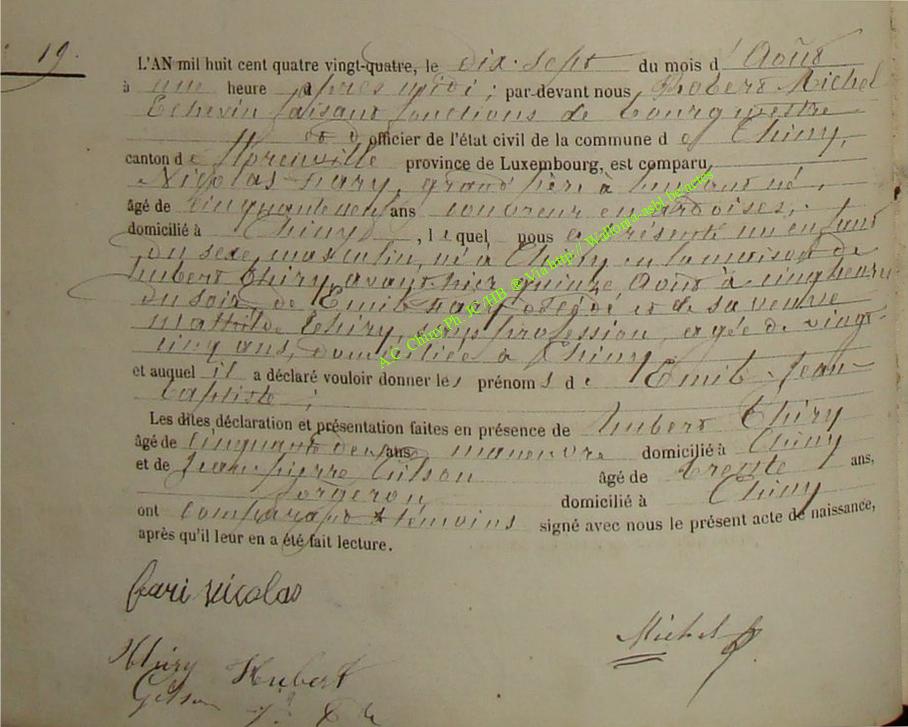 19.
L'AN mil huit cent quatre vingt-quatre, le dix-sept du mois d'Août
à une heure d'après midi ; par-devant nous Robert Michel
Echevin faisant fonctions de bourgmestre
officier de l'état civil de la commune de Chiny,
canton de Florenville province de Luxembourg, est comparu
Nicolas Fary, grand père à l'enfant né,
âgé de cinquante neuf ans couvreur en ardoises,
domicilié à Chiny, lequel nous a présenté un enfant
du sexe masculin, né à Chiny en la maison de
Hubert Thiry, avant hier quinze Août à cinq heures
du soir de Emile Fary décédé et de sa veuve
Mathilde Thiry, sans profession, agée de vingt-
cinq ans, domiciliée à Chiny
et auquel il a déclaré vouloir donner les prénoms de Emile-Jean-
Baptiste ;
Les dites déclaration et présentation faites en présence de Hubert Thiry
âgé de cinquante deux ans manœuvre domicilié à Chiny
et de Jean-pierre Gilson âgé de trente ans,
forgeron domicilié à Chiny
ont comparant & témoins signé avec nous le présent acte de naissance,
après qu'il leur en a été fait lecture.
fari nicolas
Michel R
Thiry Hubert
Gilson J. P.
A.C. Chiny Ph JC/HB @ Via http://Wallonia-asbl.be.actes